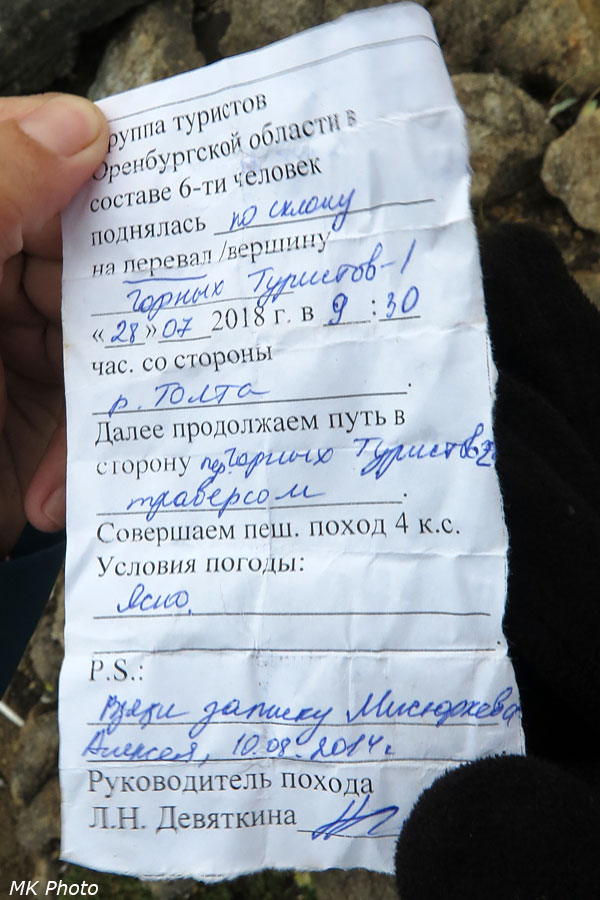 Группа туристов
Оренбургской области в
составе 6-ти человек
поднялась по склону
на перевал /вершину
Горных Туристов-1
«28»07 2018 г. в 9 :30
час. со стороны
р. Толта.
Далее продолжаем путь в
сторону пер. Горных Туристов 2
траверсом.
Совершаем пеш. поход 4 к.с.
Условия погоды:
Ясно.
P.S.:
записку Мисюркева
Алексея, 10.08.2014 г.
Руководитель похода
Л.Н. Девяткина
MK Photo